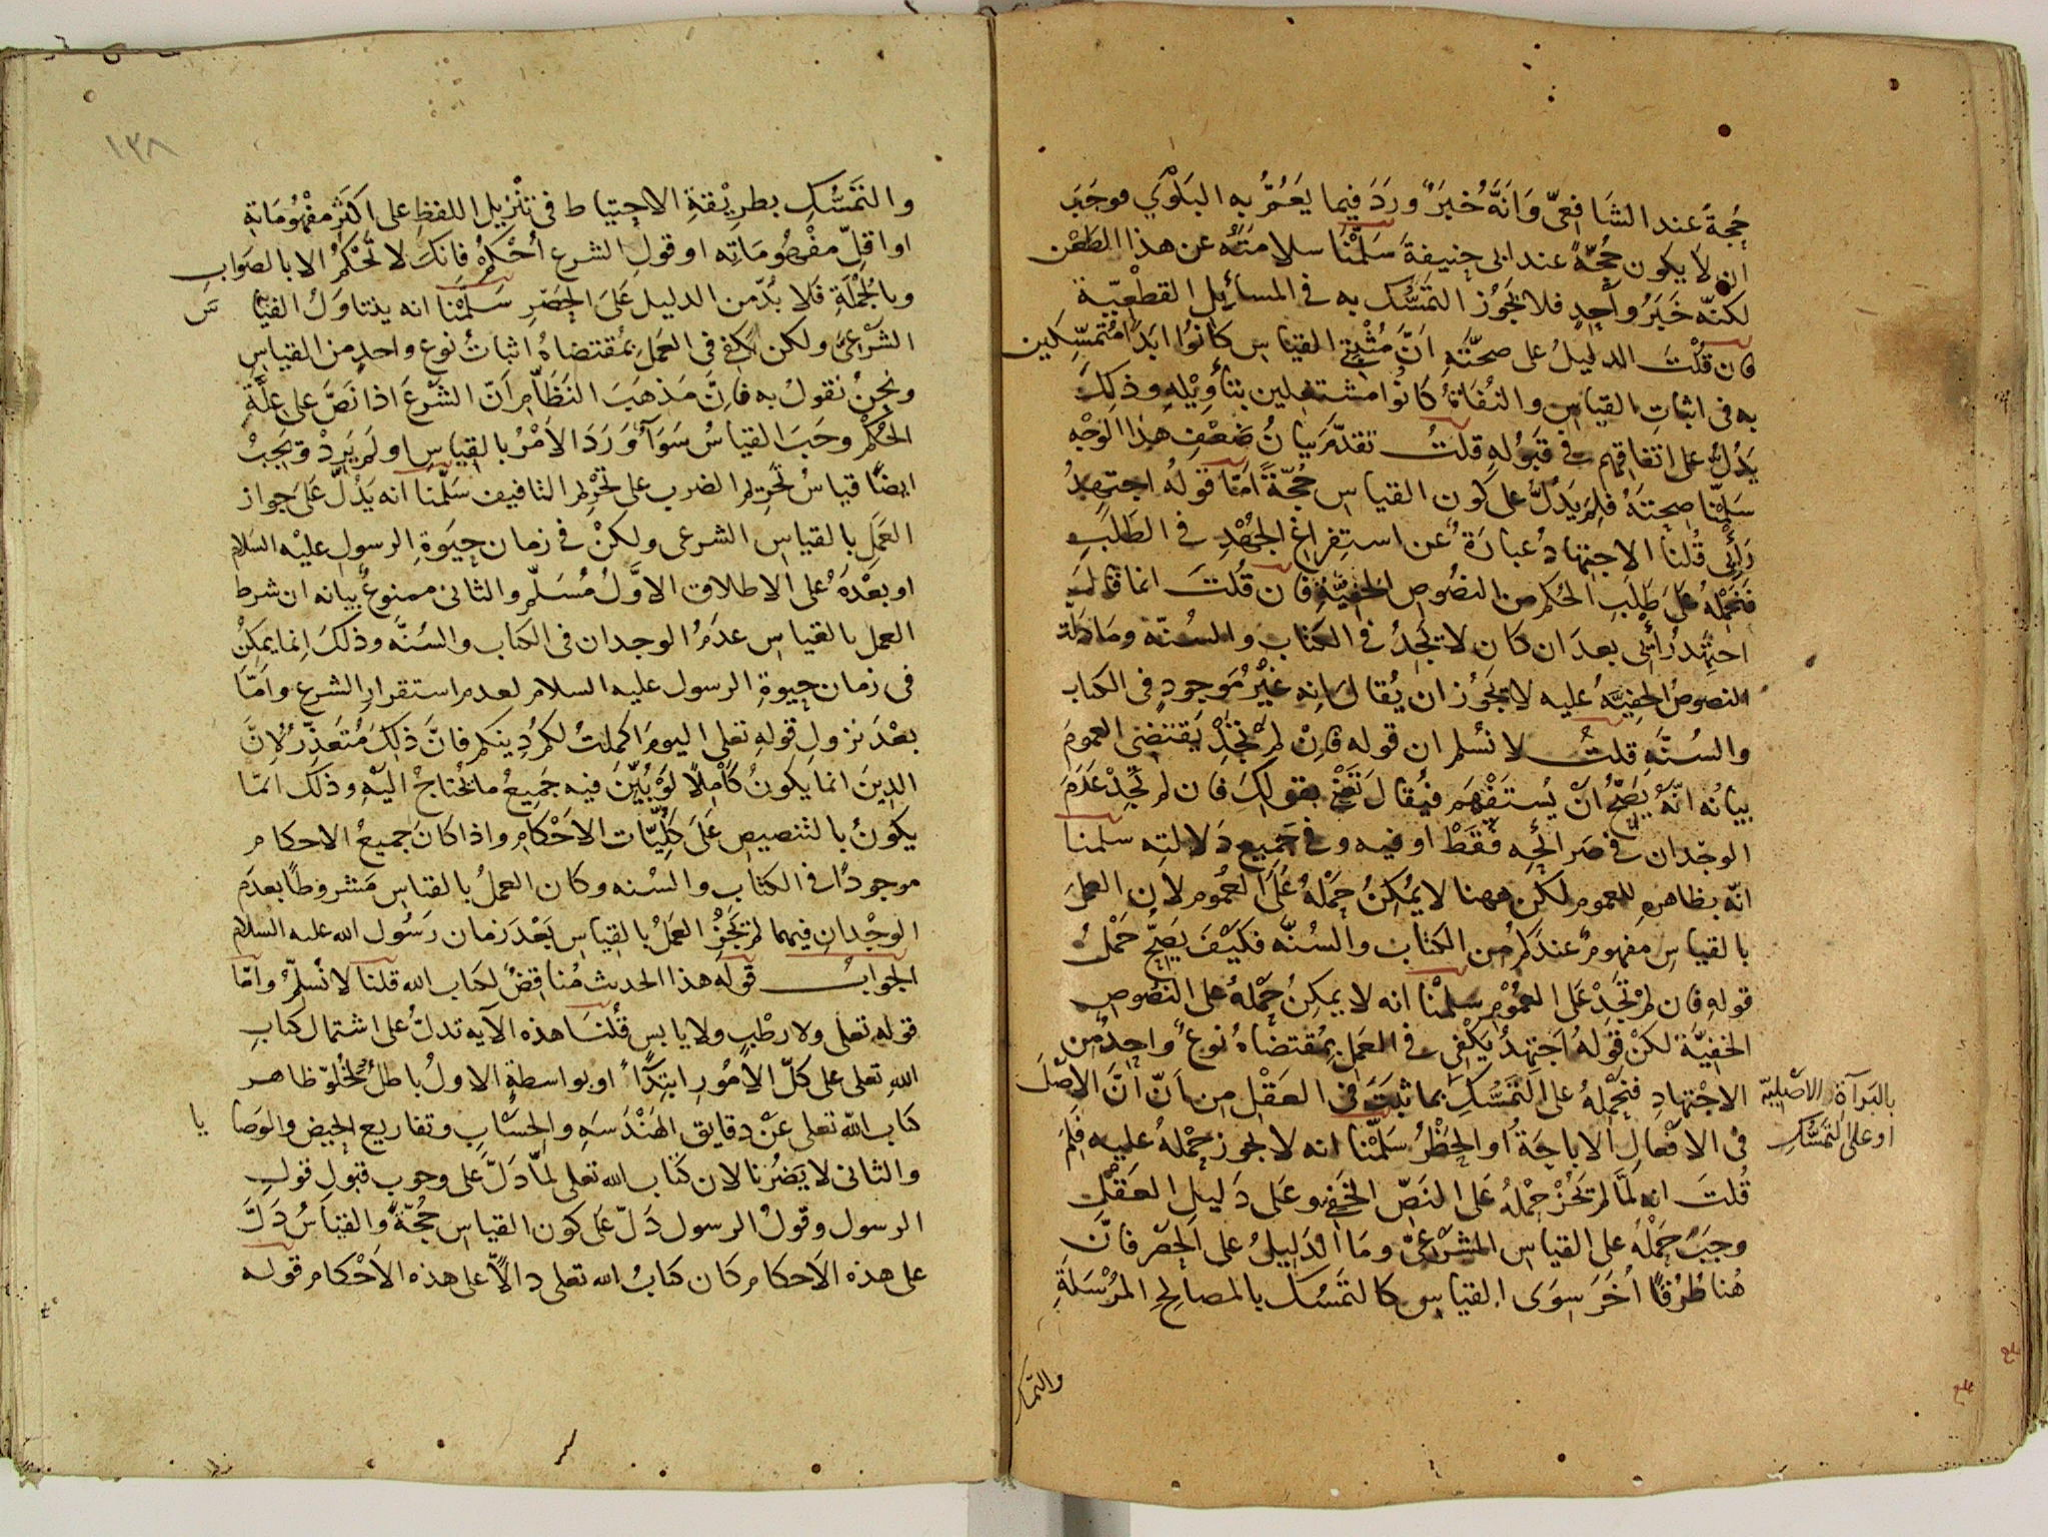 حُجةً عند الشَافعىّ وَانَّهَ خُبَرٌ وَرَدَ فيما يَعُمُّ به البَلْوَي فوجَبَ
ان لا يكون حُجّةً عند ابى حنيفةَ سَلَّمْنَا سلامتَهُ عن هذا الطَعْن
لكنّه خَبَرُ واحِدٍ فلا يَجوُز التمَسُّك به فى المسائِل القطْعِيّة
فان قُلْتَ الدليلُ على صحّتَهِ انَّ مُثْبِتِى القياس كانُوا ابَدًا مُتمسِّكين
به فى اثباتِ القياسِ والنُفَاةُ كانُوا مشتغلين بتأوِيْلِهِ وذلِكَ
يَدُلُّ على اتفاقِهم فى قَبُولِهِ قلتُ تقدّمَ بيانُ ضَعْفِ هذا الوَجْهِ
سَلّمْنا صِحتَهُ فلِمَ يَدُلُّ على كون القياس حُجّةً امّا قولهُ اجتهِدُ
رَأيِى قُلنا الاجتِهادُ عبارَةٌ عن استِفراغ الجُهْدِ فى الطَلَبِ
فنحْمِلُهُ علَى طَلَبِ الحُكم من النصُوص الخفيَّةِ فان قُلتَ انما قالَ
اجتَهِدُ رأيى بعدَ ان كان لا تَجِدُ فى الكتاب والسُنّه ومَا دلّت
النصوصُ الخفيَّهُ عليه لا يجَوُز ان يُقالَ انه غيْرُ مَوجودٍ فى الكتاب
والسُنَّهِ قلتُ لا نسُلم ان قوله فاِنْ لم تجِدْ يَقتَضى العمومَ
بيانُه انَّهُ يَصِحُّ انْ يُستَفْهَم فيُقالَ تَعْنى بقولِكَ فان لم تجِدْ عَدَمَ
الوجْدان فى صَرائحِه فَقَطْ او فيه وفى جَمِيع دَلالتِه سلمنا
انّه بظاهره للعموم لكن ههنا لا يمُكِنُ حَمْلهُ عَلَى العمُوم لان العملَ
بالقياسِ مفهومٌ عندَكم من الكتاب والسُنّه فكيْفَ يَصِحُّ حَمْلُ
قولهِ فان لم تَجَدْ عَلى العُمُوم سلمْنا انه لا يمكِنُ حَمْلهُ على النصُوص
الخفيّة لكن قولهُ اَجتَهِدُ يَكْفى فى العَمَلِ بمُقتضاهُ نوعٌ واحِدٌ من
الاجْتِهادِ فنحْمِلهُ على التَمَسُّكِ بما ثبَتَ فى العَقْلِ من اَنّ انَّ الاصْلَ
بالبَرآءَةِ الاصْلِيّه
او على التَمَسُّكِ
فى الافعالِ الاباحَةُ او الحَظْرُ سَلّمْنا انه لا يجوز حمْلهُ عليه فَلِمَ
قُلتَ انه لَمّا لم تجُزْ حَمْلهُ عَلى النَصّ الخَفى وعَلى دَليلِ العَقْلِ
وجَبَ حَمْلهُ على القياسِ الشَرْعىّ ومَا الدَلِيلُ على الحَصْر فانّ
هُنا طُرُقًا اُخَرَ سِوَى القياسِ كالتَمسُّك بالمصالِحِ المُرْسَلةِ
والتمسك
١٣٨
والتَمَسُّكِ بطرِيْقةِ الاحتِياط فى تنْزيْل اللفظِ على اكثَر مفْهُومَاتهِ
او اقلِّ مفْهومَاتِه او قولِ الشرع اُحْكُمْ فانكَ لا تَحْكُمُ الا بالصَوابِ
وبالجُمْلَةِ فلا بُدّ من الدليل عَلَى الحَصْرِ سَلّمْنا انه يتناوَلُ القياس
الشَرْعىّ ولكن يكفى فى العَملِ بمُقتضاهُ اثباتُ نوع واحدٍ من القياسِ
ونحنُ نقولُ به فاِنَّ مَذهَبَ النَظَّامِ اَنّ الشَرْعَ اذا نَصَّ على عِلّةِ
الحُكْمِ وجَبَ القياسُ سَوَآءٌ وَرَدَ الامْرُ بالقِياسِ او لم يَرِدْ ويَجِبُ
ايضًا قياسُ تحَرِيم الضرب على تحْرِيم التافيف سَلّمنا انه يَدُلّ عَلى جواز
العَمَلِ بالقياسِ الشرعى ولكنْ فى زمان حيٰوةِ الرسولِ عليْه السَلام
او بعْدَهُ على الاطلاق الاوّلُ مُسَلّم والثانى ممنوعٌ بيانه ان شرط
العمل بالقياس عدَمُ الوجدان فى الكتاب والسُنَّه وذلكَ اِنما يمكِنُ
فى زمان حيٰوةِ الرسول عليه السلام لعدم استقرارِ الشرع وامّا
بعْدَ نزولِ قولهِ تعلى اليومَ اكملتُ لكم دِينكم فانَّ ذلِكَ مُتعَذّرٌ لانَّ
الدِينَ انما يكونُ كَامِلاً لَوْ بُيّنَ فيه جَمِيعُ ما يُحْتاجُ اليْهِ وذلك انمّا
يكونُ بالتنصيصِ عَلَى كُلِّيّات الاَحْكامِ واذا كانَ جميعُ الاحكام
موجودًا فى الكتاب والسُنه وكان العملُ بالقياس مَشروطًا بعدَم
الوجْدانِ فيهما لم يجُزْ العَمَلُ بالقياسِ بَعْدَ زمان رَسُول الله عليه السلام
الجوابُ قولهُ هذا الحديث مُناقِضٌ لكتاب الله قلنا لا نُسلّمُ وامّا
قوله تعلى ولا رطْبٍ ولا يابسٍ قُلنَا هذه الآيه تدلُّ على اشتمال كتابِ
اللهِ تعلى على كلّ الاُمُور ابتِدَآءً او بواسطةٍ الاولُ باطلٌ لخُلوّ ظاهر
كتاب الله تعلى عَنْ دقايق الهَنْدَسَهِ والحِسْابِ وتفاريع الحيض والوَصايا
والثانى لا يَضُرّنا لان كتاب الله تعلى لمّا دَلَّ عَلى وجوب قبولِ قولِ
الرسول وقولُ الرسول دَلّ عَلى كون القياس حُجّةً والقِيَاسُ دَلّ
على هذه الاَحكام كان كتابُ الله تعلى دالاًّ على هذه الاَحْكام قوله